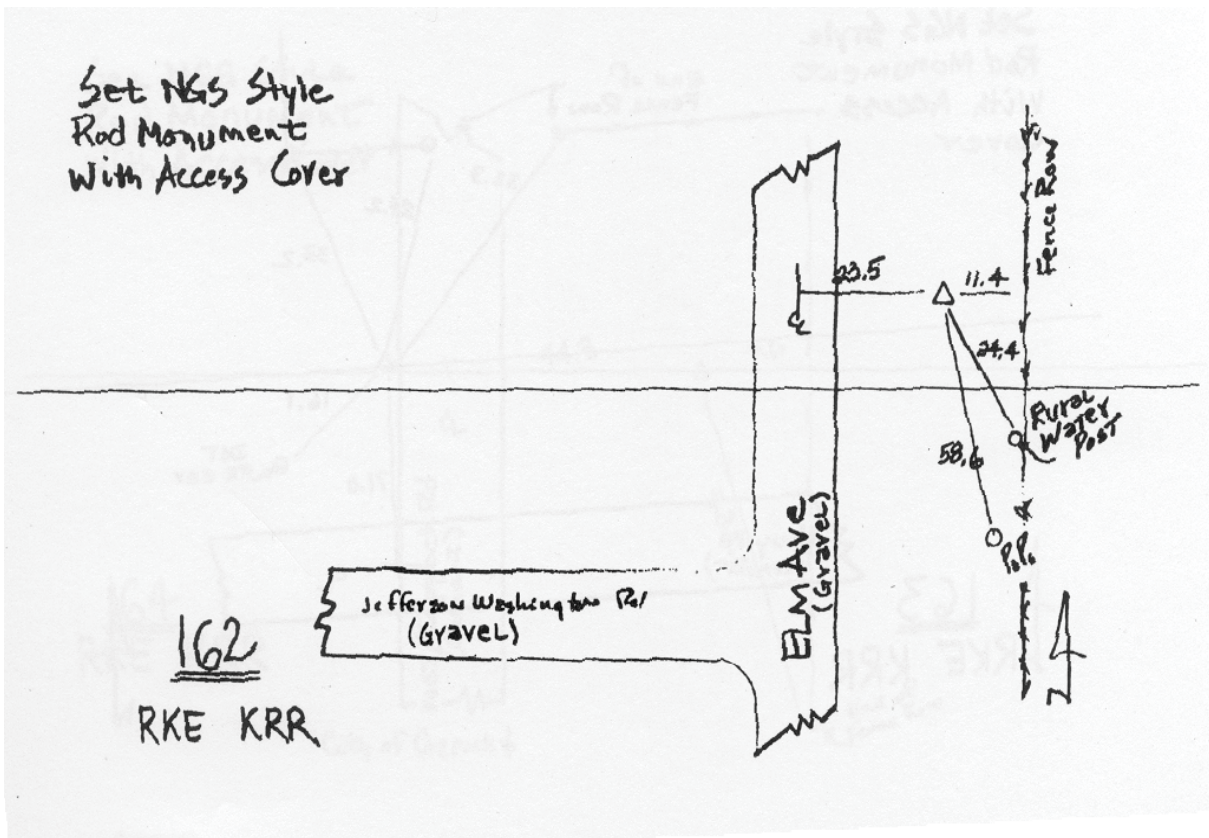 Set NGS Style
Rod Monument
With Access Cover
Fence Row
23.5
11.4
℄
24.4
Rural
Water
Post
58.6
P.P.
ELM Ave
(Gravel)
Jefferson Washington Rd
(Gravel)
162
RKE KRR